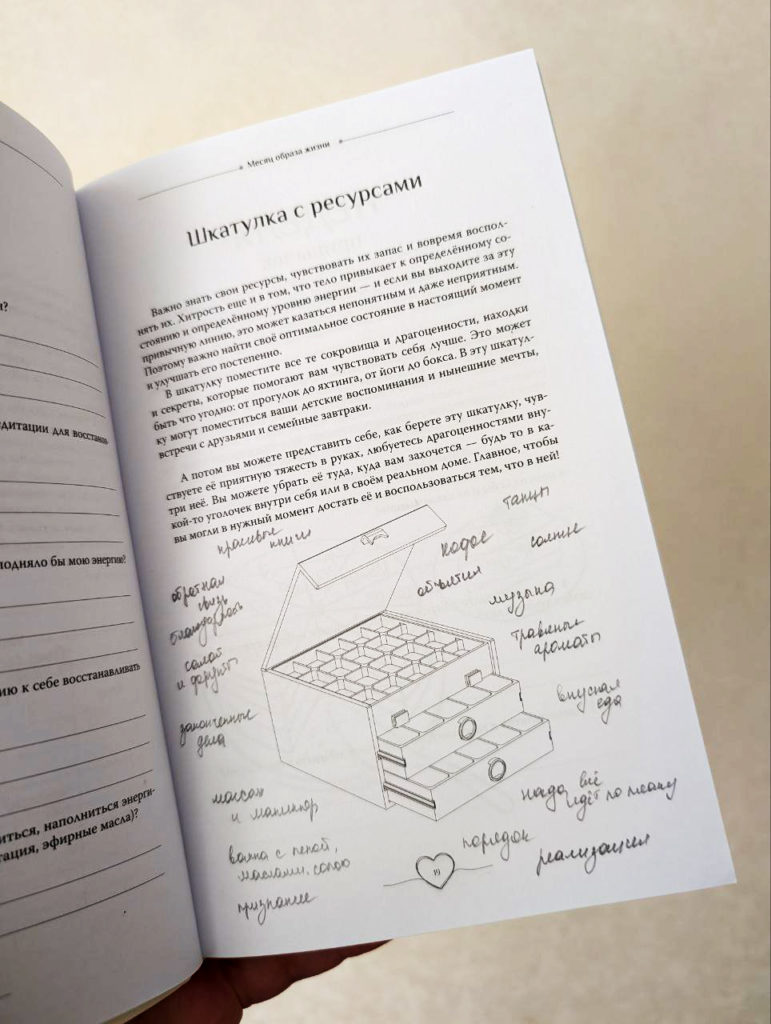 и?
едитации для восстанов
подняло бы мою энергию?
ию к себе восстанавливать
иться, наполниться энерги-
тация, эфирные масла)?
Месяц образа жизни
Шкатулка с ресурсами
Важно знать свои ресурсы, чувствовать их запас и вовремя воспол-
нять их. Хитрость еще и в том, что тело привыкает к определённому со-
стоянию и определённому уровню энергии — и если вы выходите за эту
привычную линию, это может казаться непонятным и даже неприятным.
Поэтому важно найти своё оптимальное состояние в настоящий момент
и улучшать его постепенно.
В шкатулку поместите все те сокровища и драгоценности, находки
и секреты, которые помогают вам чувствовать себя лучше. Это может
быть что угодно: от прогулок до яхтинга, от йоги до бокса. В эту шкатул-
ку могут поместиться ваши детские воспоминания и нынешние мечты,
встречи с друзьями и семейные завтраки.
А потом вы можете представить себе, как берете эту шкатулку, чув-
ствуете её приятную тяжесть в руках, любуетесь драгоценностями вну-
три неё. Вы можете убрать её туда, куда вам захочется — будь то в ка-
кой-то уголочек внутри себя или в своём реальном доме. Главное, чтобы
вы могли в нужный момент достать её и воспользоваться тем, что в ней!
танцы
красивые
книги
кофе
солнце
объятия
обратная
связь
благодарность
музыка
травяные
ароматы
салат
и фрукты
вкусная
еда
законченные
дела
массаж
и маникюр
когда всё
идёт по плану
ванна с пеной,
маслами, солью
порядок
реализация
признание
19